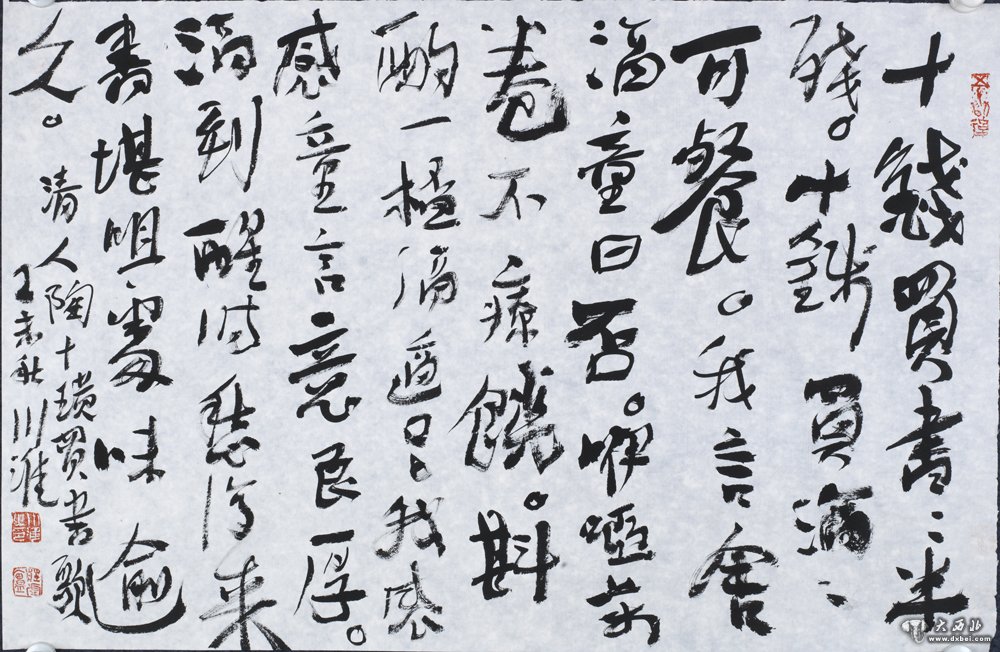 十錢買書〻半
殘。十錢買酒〻
可餐。我言舍
酒童曰否。咿唔萬
卷不療饑。斟
酌一榼酒適口。我感
感童言意良厚。
酒到醒時愁復來
書堪咀嚼味逾
久。
清人陶士璜買書歌
未秋 川淮
大西北
www.dxbei.com